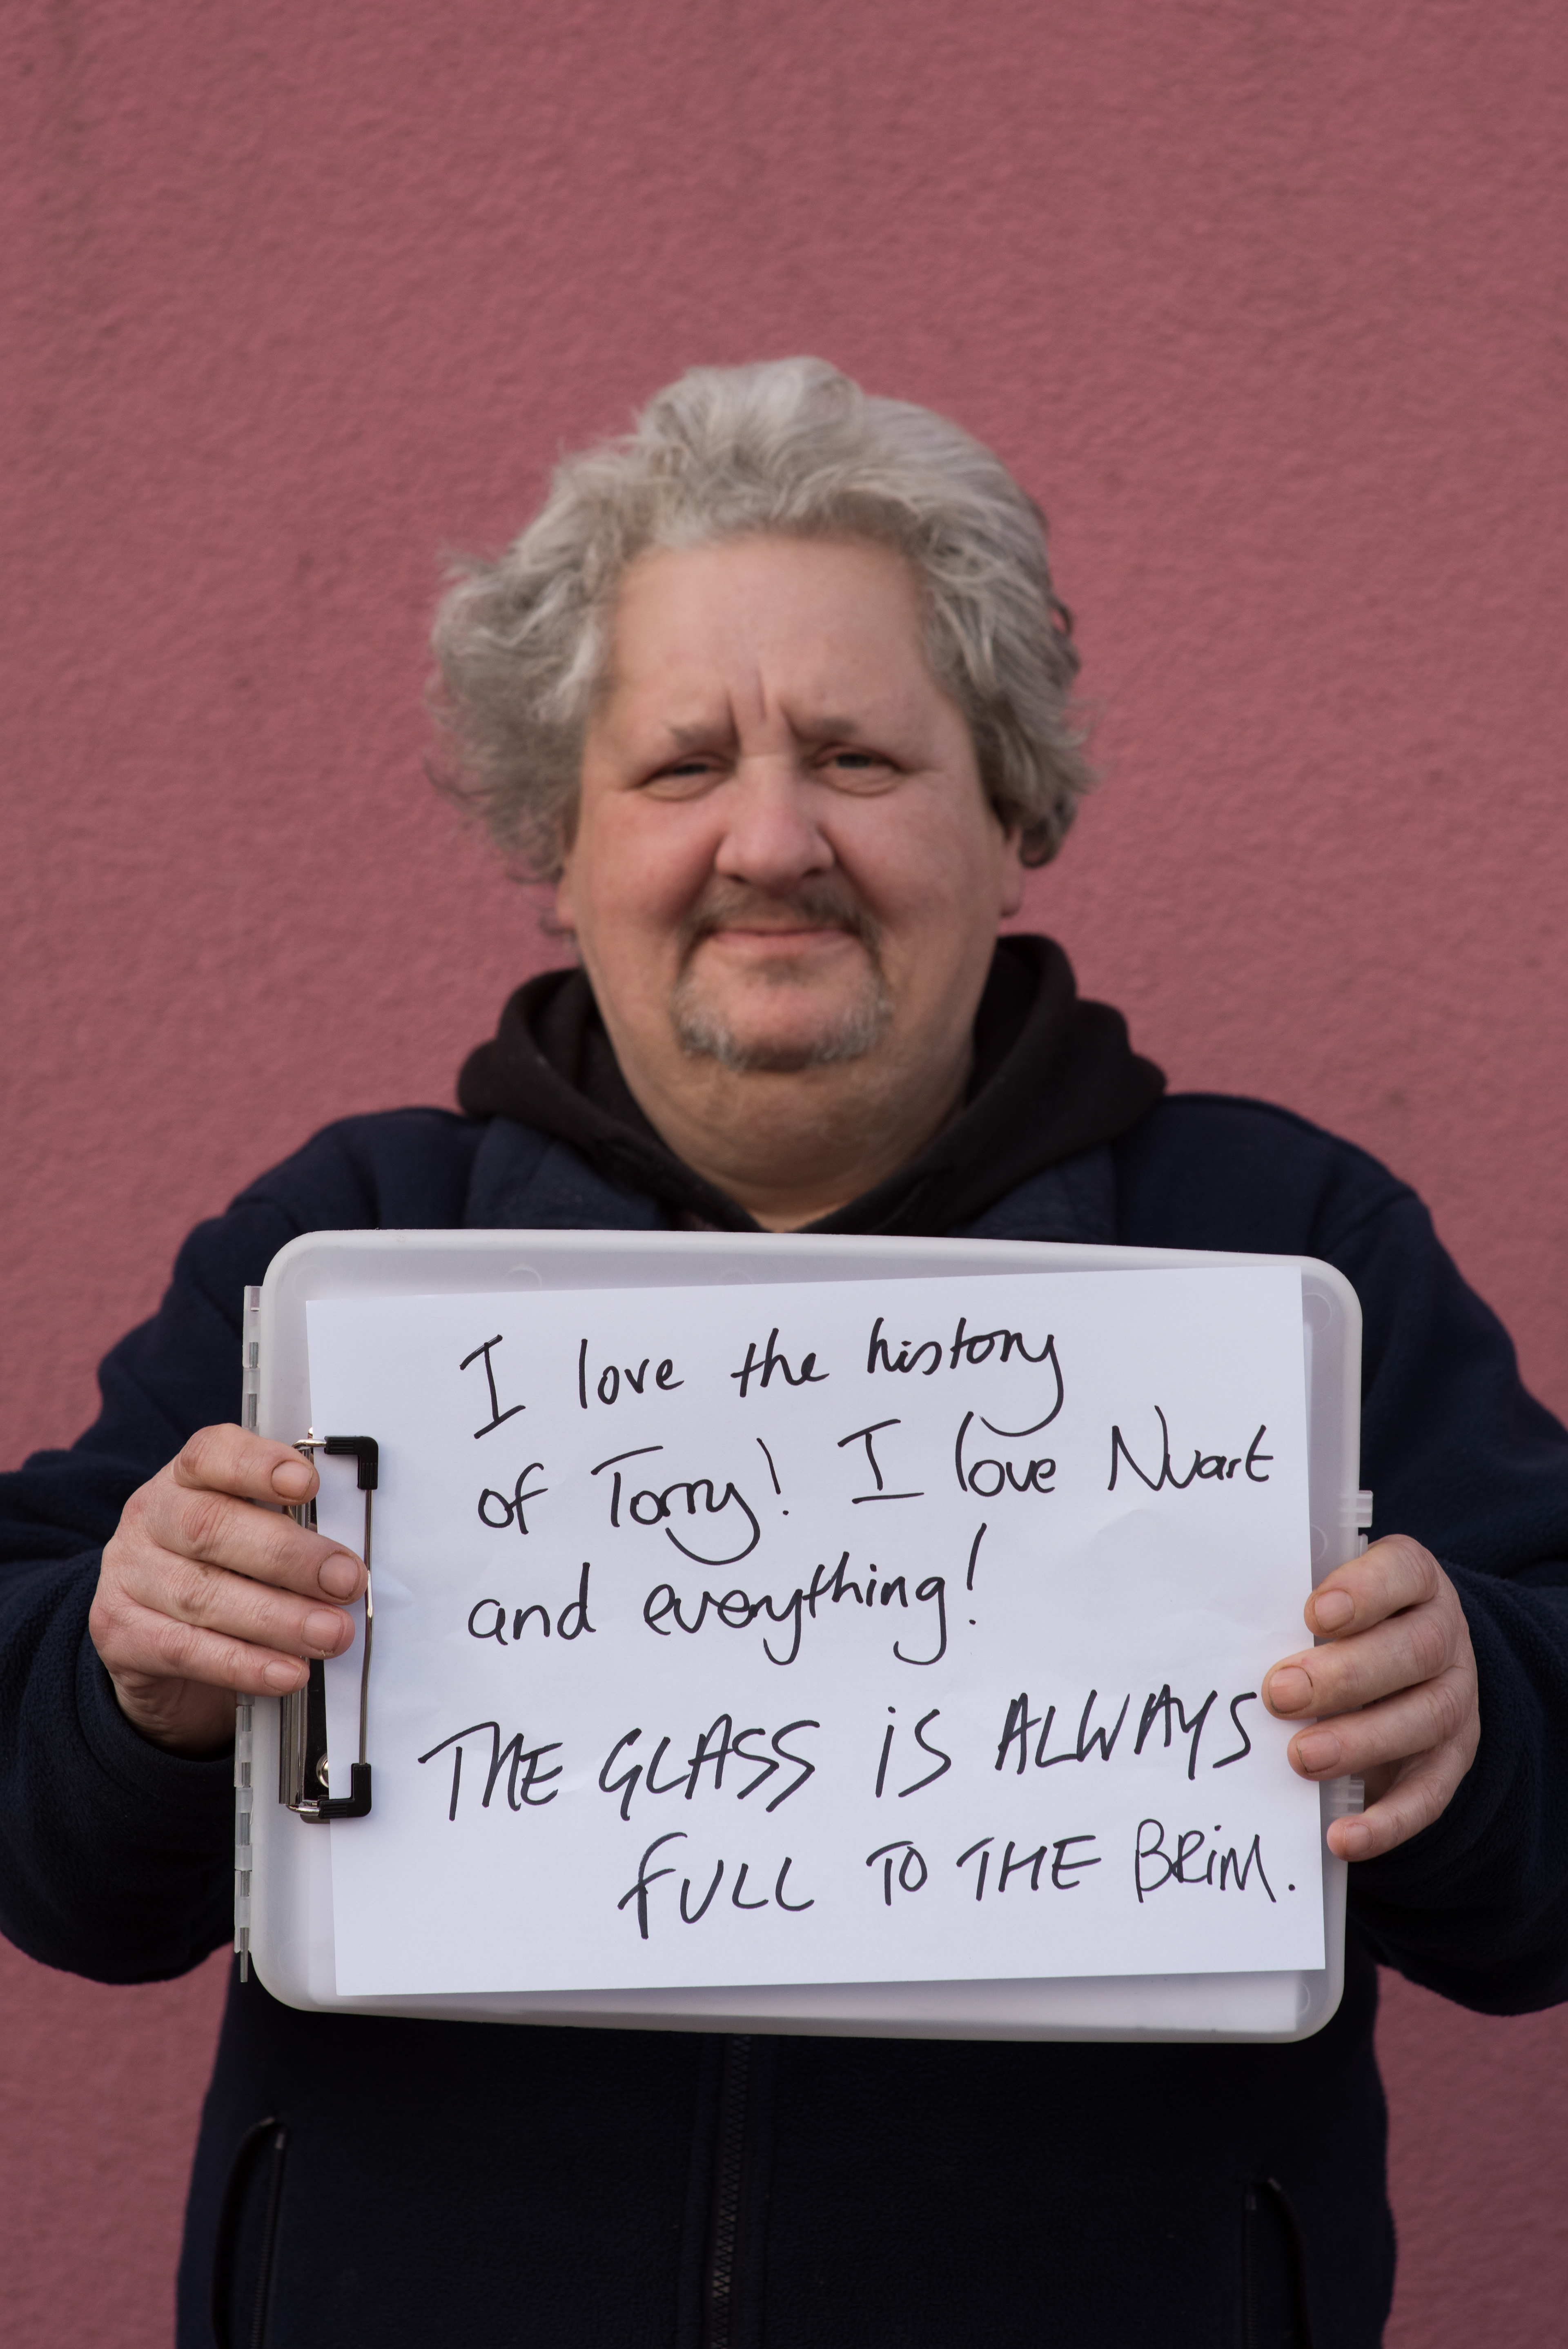 I love the history
of Torry! I love Nuart
and everything!
THE GLASS iS ALWAYS
FULL TO THE BRiM.